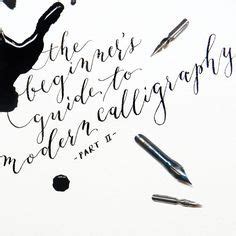 the
beginner's
guide to
modern calligraphy
- PART II -